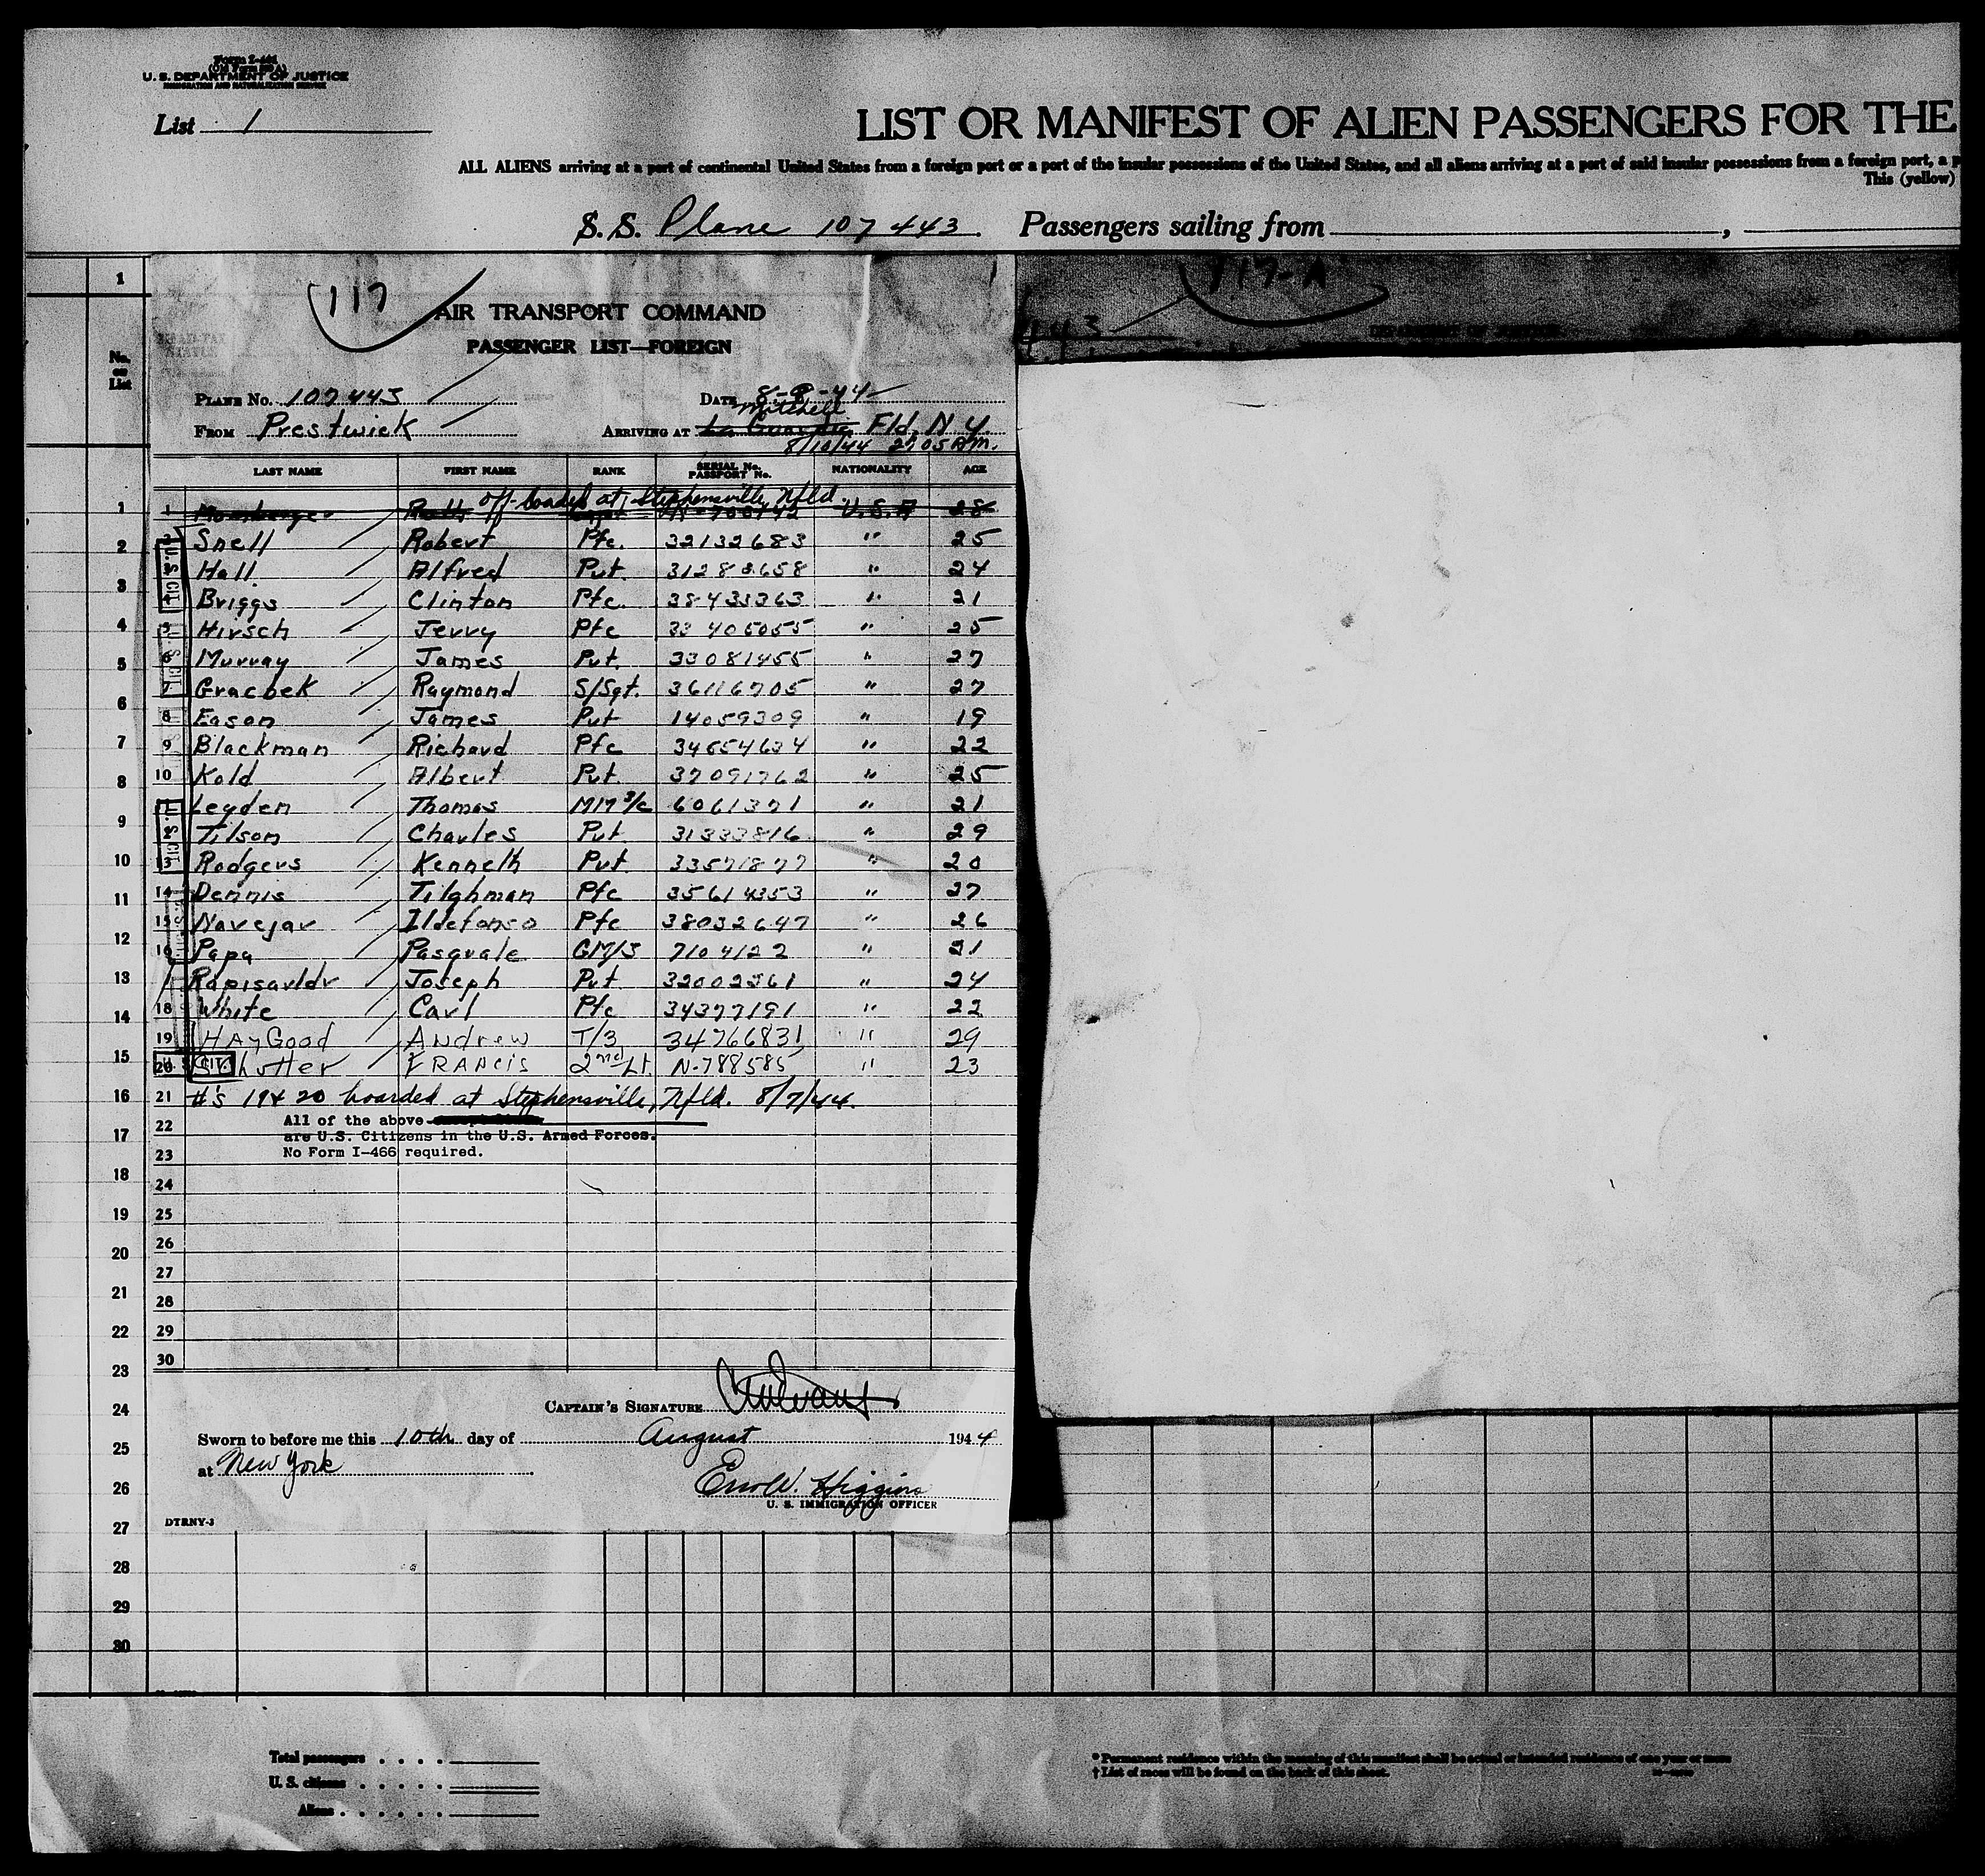 Form I-466
(Old Form 500A)
U. S. DEPARTMENT OF JUSTICE
IMMIGRATION AND NATURALIZATION SERVICE
List 1
LIST OR MANIFEST OF ALIEN PASSENGERS FOR THE
ALL ALIENS arriving at a port of continental United States from a foreign port or a port of the insular possessions of the United States, and all aliens arriving at a port of said insular possessions from a foreign port, a p
This (yellow)
S. S. Plane 107443. Passengers sailing from
117
117-A
443
DEPARTMENT OF JUSTICE
AIR TRANSPORT COMMAND
PASSENGER LIST—FOREIGN
PLANE NO. 107443 DATE 8-8-44
Mitchell
FROM Prestwick ARRIVING AT La Guardia Fld. N Y.
8/10/44 2705 A.M.
No. on List
LAST NAME FIRST NAME RANK SERIAL No. PASSPORT No. NATIONALITY AGE
off-boarded at Stephensville, Nfld.
1 Ruth U.S.A 28
2 Snell Robert Pfc. 32132683 " 25
3 Hall Alfred Pvt. 31282658 " 24
4 Briggs Clinton Pfc. 38433363 " 21
5 Hirsch Jerry Pfc 33405055 " 25
6 Murray James Pvt. 33081455 " 27
7 Gracbek Raymond S/Sgt. 36116705 " 27
8 Eason James Pvt 14059309 " 19
9 Blackman Richard Pfc 34654634 " 22
10 Kold Albert Pvt. 37091762 " 25
11 Leyden Thomas MM 3/c 6061371 " 21
12 Tilson Charles Pvt. 31333816 " 29
13 Rodgers Kenneth Pvt. 33571877 " 20
14 Dennis Tilghman Pfc 35614353 " 27
15 Navejar Ildefonso Pfc 38032647 " 26
16 Papa Pasquale GM/3 7104122 " 21
Rapisavldr Joseph Pvt. 32002561 " 24
18 White Carl Pfc 34377191 " 22
19 HAyGood Andrew T/3 34766831 " 29
20 Shutter FRANCIS 2nd Lt. N-788585 " 23
21 #'s 19 & 20 boarded at Stephensville, Nfld. 8/7/44.
22 All of the above
are U.S. Citizens in the U.S. Armed Forces.
23 No Form I-466 required.
24
25
26
27
28
29
30
CAPTAIN'S SIGNATURE
Sworn to before me this 10th day of August 1944
at New York
Higgins
U. S. IMMIGRATION OFFICER
DTRNY-3
1
1
2
3
4
5
6
7
8
9
10
11
12
13
14
15
16
17
18
19
20
21
22
23
24
25
26
27
28
29
30
Total passengers
U. S. citizens
Aliens
* Permanent residence within the meaning of this manifest shall be actual or intended residence of one year or more
† List of races will be found on the back of this sheet.